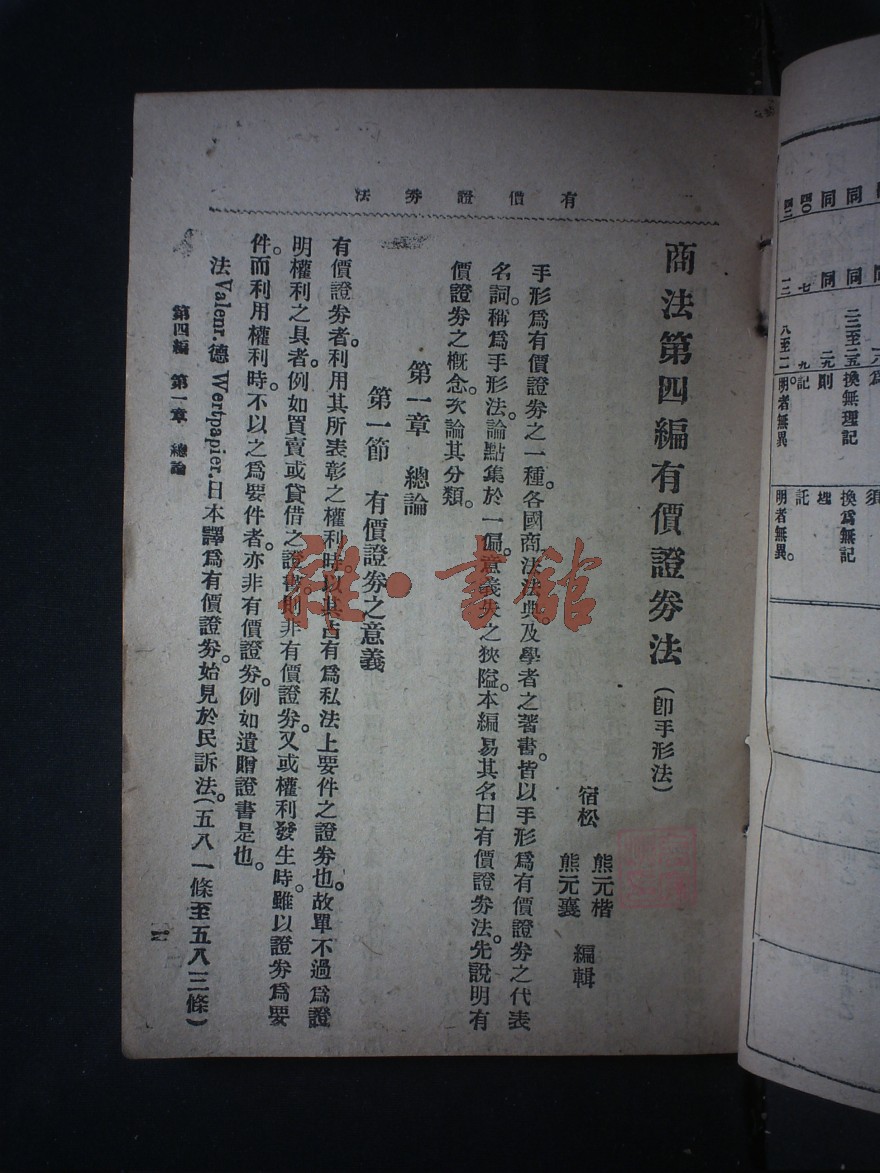 有價證券法
商法第四編有價證券法（卽手形法）
宿松
熊元楷
熊元襄
編輯
手形爲有價證券之一種。各國商法法典。及學者之著書。皆以手形爲有價證券之代表
名詞。稱爲手形法。論點集於一偏。意義失之狹隘。本編易其名曰有價證券法。先說明有
價證券之槪念。次論其分類。
第一章　總論
第一節　有價證券之意義
有價證券者。利用其所表彰之權利時。以其占有爲私法上要件之證券也。故單不過爲證
明權利之具者。例如買賣或貸借之證書。則非有價證券。又或權利發生時。雖以證券爲要
件。而利用權利時。不以之爲要件者。亦非有價證券。例如遺贈證書是也。
法Valenr.德Wertpapier.日本譯爲有價證券。始見於民訴法。（五八一條至五八三條）
第四編　第一章　總論
一
雅·書館
爲
須
同
同
二三至二五
換無理記
換爲無記
同
同
二九
則
四〇
七
九
記
託
四二
一三
八至二一
明者無異。
明者無異。